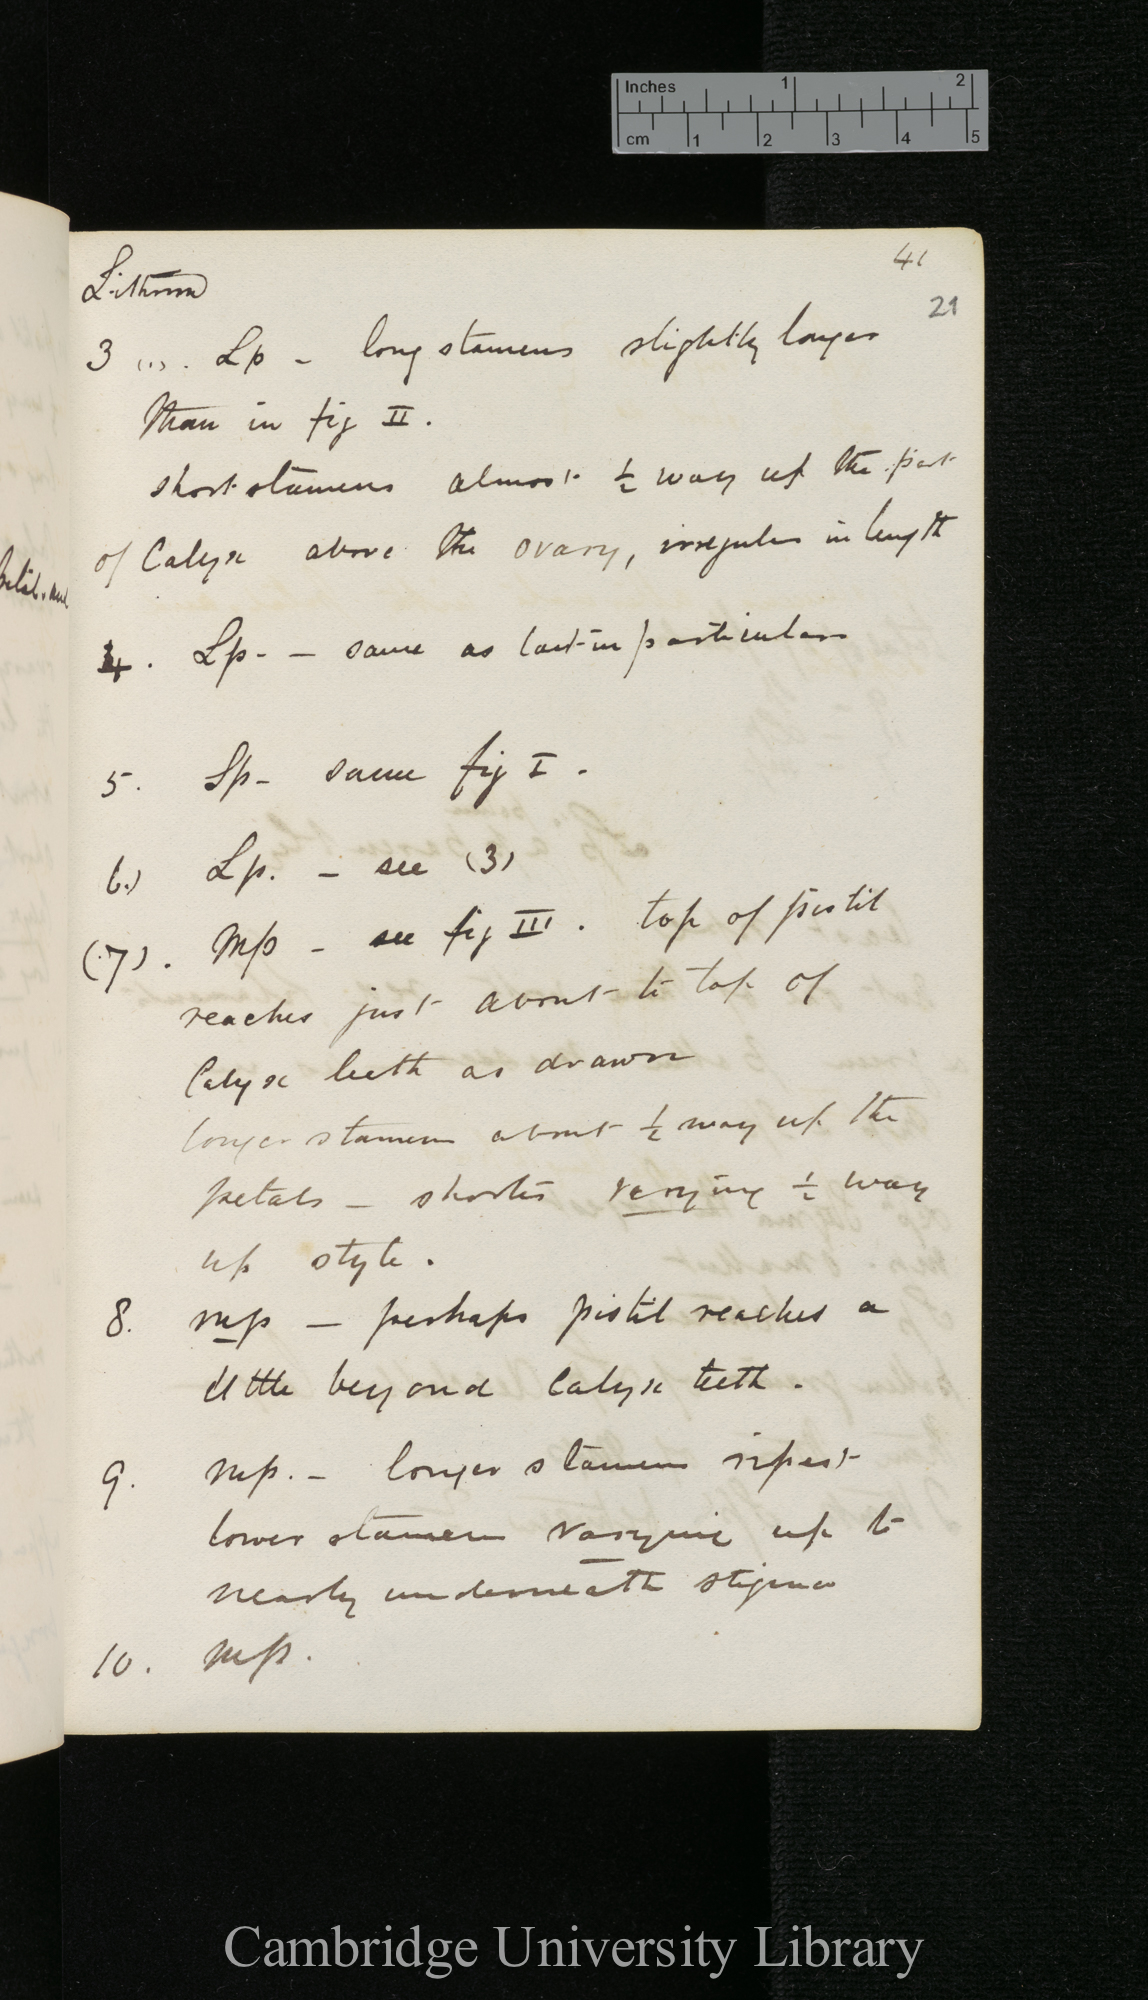 Inches 1 2
cm 1 2 3 4 5
41
21
Lithrum
3 (1). Lp - long stamens slightly longer
than in fig II.
short stamens almost ½ way up the part
of Calyx above the ovary, irregular in length
4. Lp- - same as last in particulars
5. Sp- same fig I.
6.) Lp. - see (3)
(7). Mp - see fig III. top of pistil
reaches just about to top of
Calyx teeth as drawn
longer stamens about ½ way up the
petals - shorter varying ½ way
up style.
8. mp - perhaps pistil reaches a
little beyond Calyx teeth.
9. mp. - longer stamens
lower stamens varying up to
nearly underneath stigma
10. mp.
Cambridge University Library